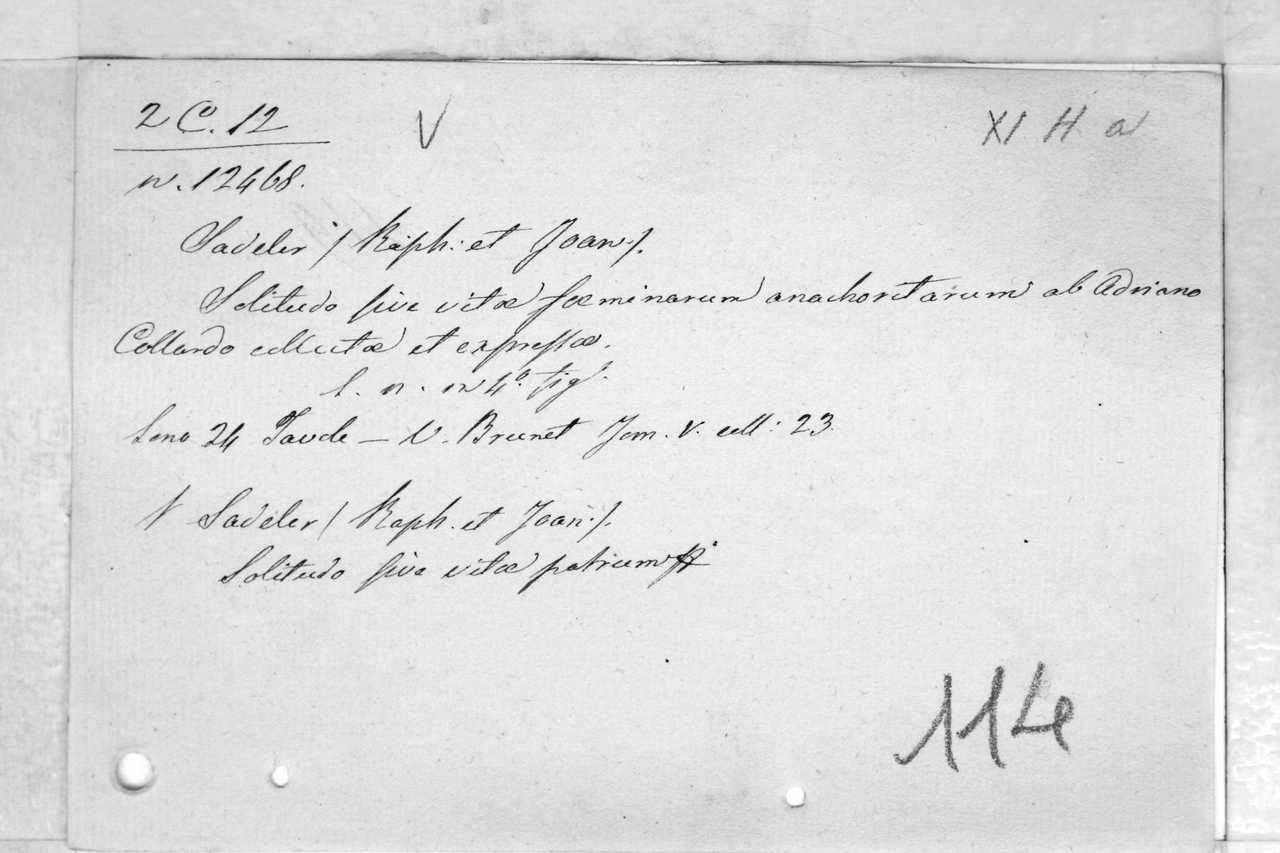 2 C. 12 V XI H a
n. 12468.
Sadeler / Raph: et Joan /.
Solitudo sive vitæ fœminarum anachoretarum ab Adriano
Collardo collectæ et expressæ.
S. n. in 4.º fig.
Sono 24 Tavole — V. Brunet Tom. V. coll: 23.
V Sadeler / Raph. et Joan. /.
Solitudo sive vitæ patrum
114